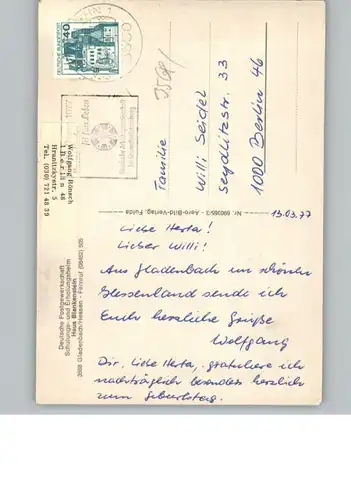 40
DEUTSCHE BUNDESPOST
1077
Wolfgang Rönsch
1 Berlin 46
Tel. (030) 721 48 39
Deutsche Postgewerkschaft
Schulungs- und Erholungsheim
Haus Blankenstein
3568 Gladenbach/Hessen - Fernruf (06462) 505
Nr. 690365/3 - Aero-Bild-Verlag, Fulda
Familie
Willi Seidel
Seydlitzstr. 33
1000 Berlin 46
13.03.77
Liebe Herta!
Lieber Willi!
Aus Gladenbach im schönen
Hessenland sende ich
Euch herzliche Grüße
Wolfgang
Dir, liebe Herta, gratuliere ich
nachträglich besonders herzlich
zum Geburtstag.